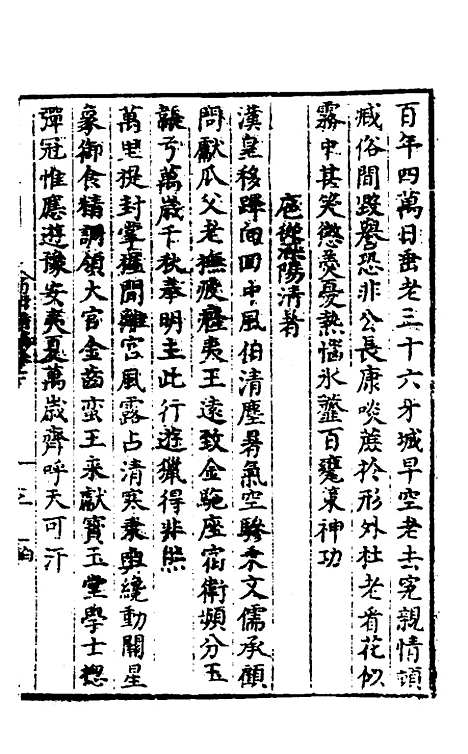 百年四萬日垂老三十六牙城早空老去冤親情頓
臧俗間毀譽恐非公長康啖蔗於形外杜老看花似
霧中其笑懲羹憂熱惱氷虀百甕策神功
扈從灤陽清暑
漢皇移蹕向回中風伯清塵暑氣空驂乘文儒承顧
問獻瓜父老撫疲癃夷王遠致金駞座宿衛頻分玉
韔弓萬歲千秋奉明主此行遊獵得非熊
萬里提封掌握間離宮風露占清寒乘輿繞動關星
象御食精調領大官金齒蠻王來獻寶玉堂學士總
彈冠惟應遊豫安夷夏萬歲齊呼天可汗